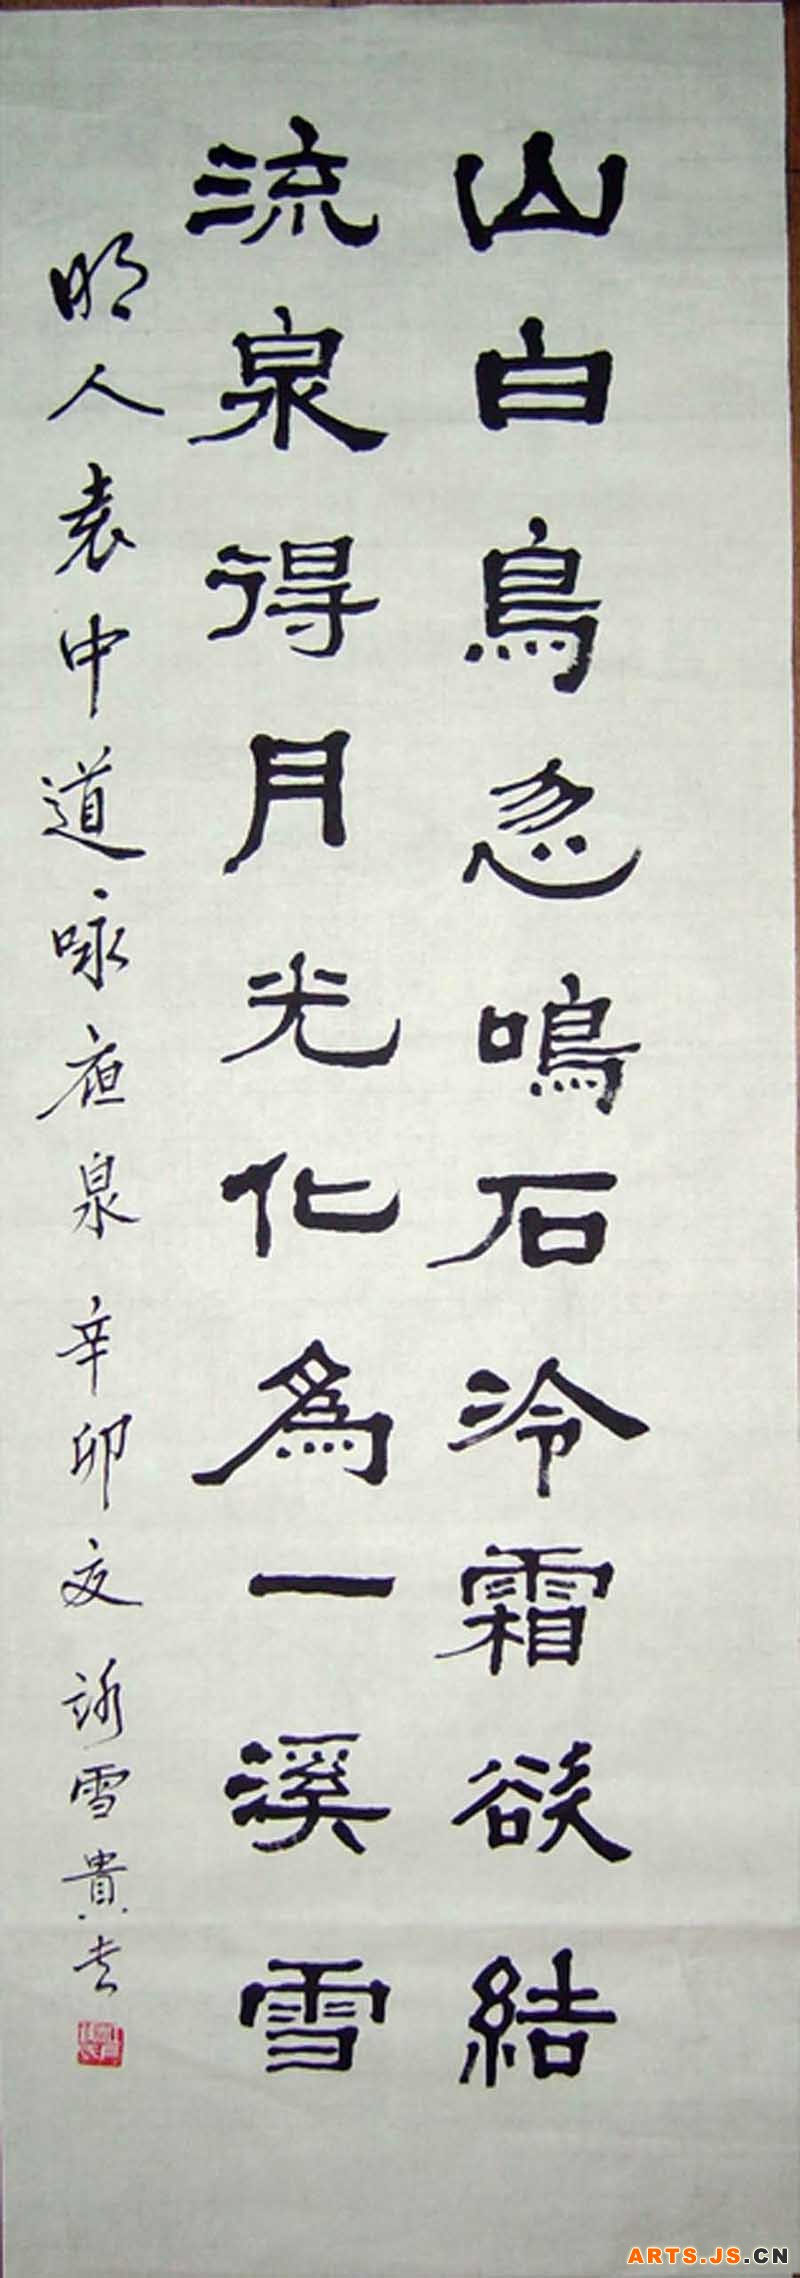 山白鳥忽鳴石泠霜欲結
流泉得月光化為一溪雪
明人袁中道咏夜泉辛卯夜 雪貴
ARTS.JS.CN